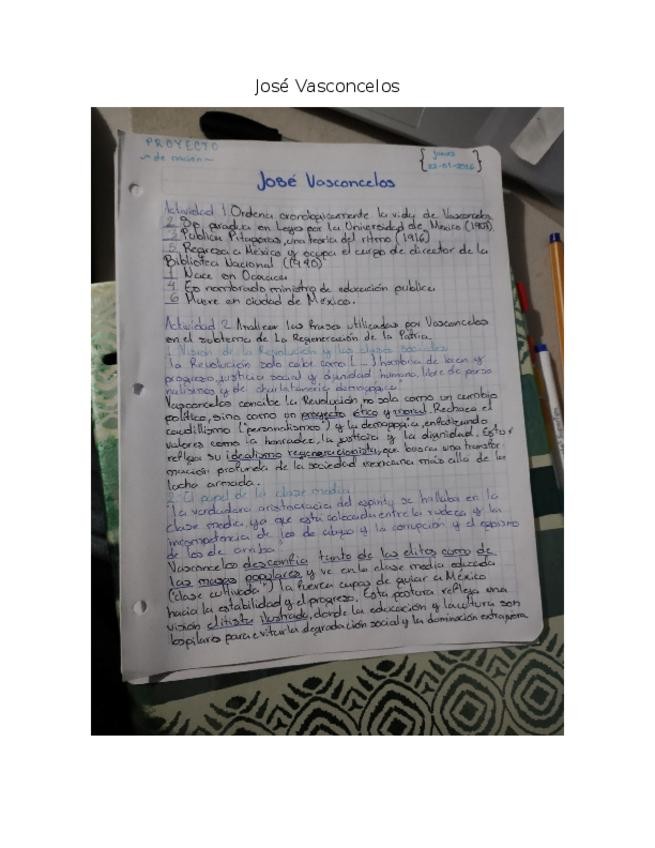 José Vasconcelos
PROYECTO
~ de nación ~
Jueves
José Vasconcelos
Actividad 1 Ordena cronologicamente la vida de Vasconcelos
2 Se gradua en Leyes por la Universidad de Mexico (1905)
3 Publica Pitagoras, una teoría del ritmo (1916)
5 Regresa a México y ocupa el cargo de director de la
Biblioteca Nacional (1940)
1 Nace en Oaxaca.
4 Es nombrado ministro de educación publica.
6 Muere en ciudad de México.
Actividad 2 Analizar las frases utilizadas por Vasconcelos
en el subtema de La Regeneración de la Patria.
1 Visión de la Revolución y las clases sociales
"la Revolución solo cabe como (...) hombria de bien y
progreso, justicia social y dignidad humana, libre de perso
nalismos y de charlatanería demagogica"
Vasconcelos concibe la Revolución no solo como un cambio
político, sino como un proyecto ético y moral. Rechaza el
caudillismo ("personalismos") y la demagogia, enfatizando
valores como la honradez, la justicia y la dignidad. Esto
refleja su idealismo regeneracionista, que busca una transfor
mación profunda de la sociedad mexicana más alla de la
lucha armada.
2. El papel de la clase media
"la verdadera aristocracia del espiritu se hallaba en la
clase media, ya que está colocada entre la rudeza y la
incompetencia de los de abajo y la corrupción y el egoismo
de los de arriba"
Vasconcelos desconfia tanto de las elites como de
las masas populares y ve en la clase media educada
("clase cultivada") la fuerza capaz de guiar a México
hacia la estabilidad y el progreso. Esta postura refleja una
visión elitista ilustrada, donde la educación y la cultura son
los pilares para evitar la degradación social y la dominación extranjera.